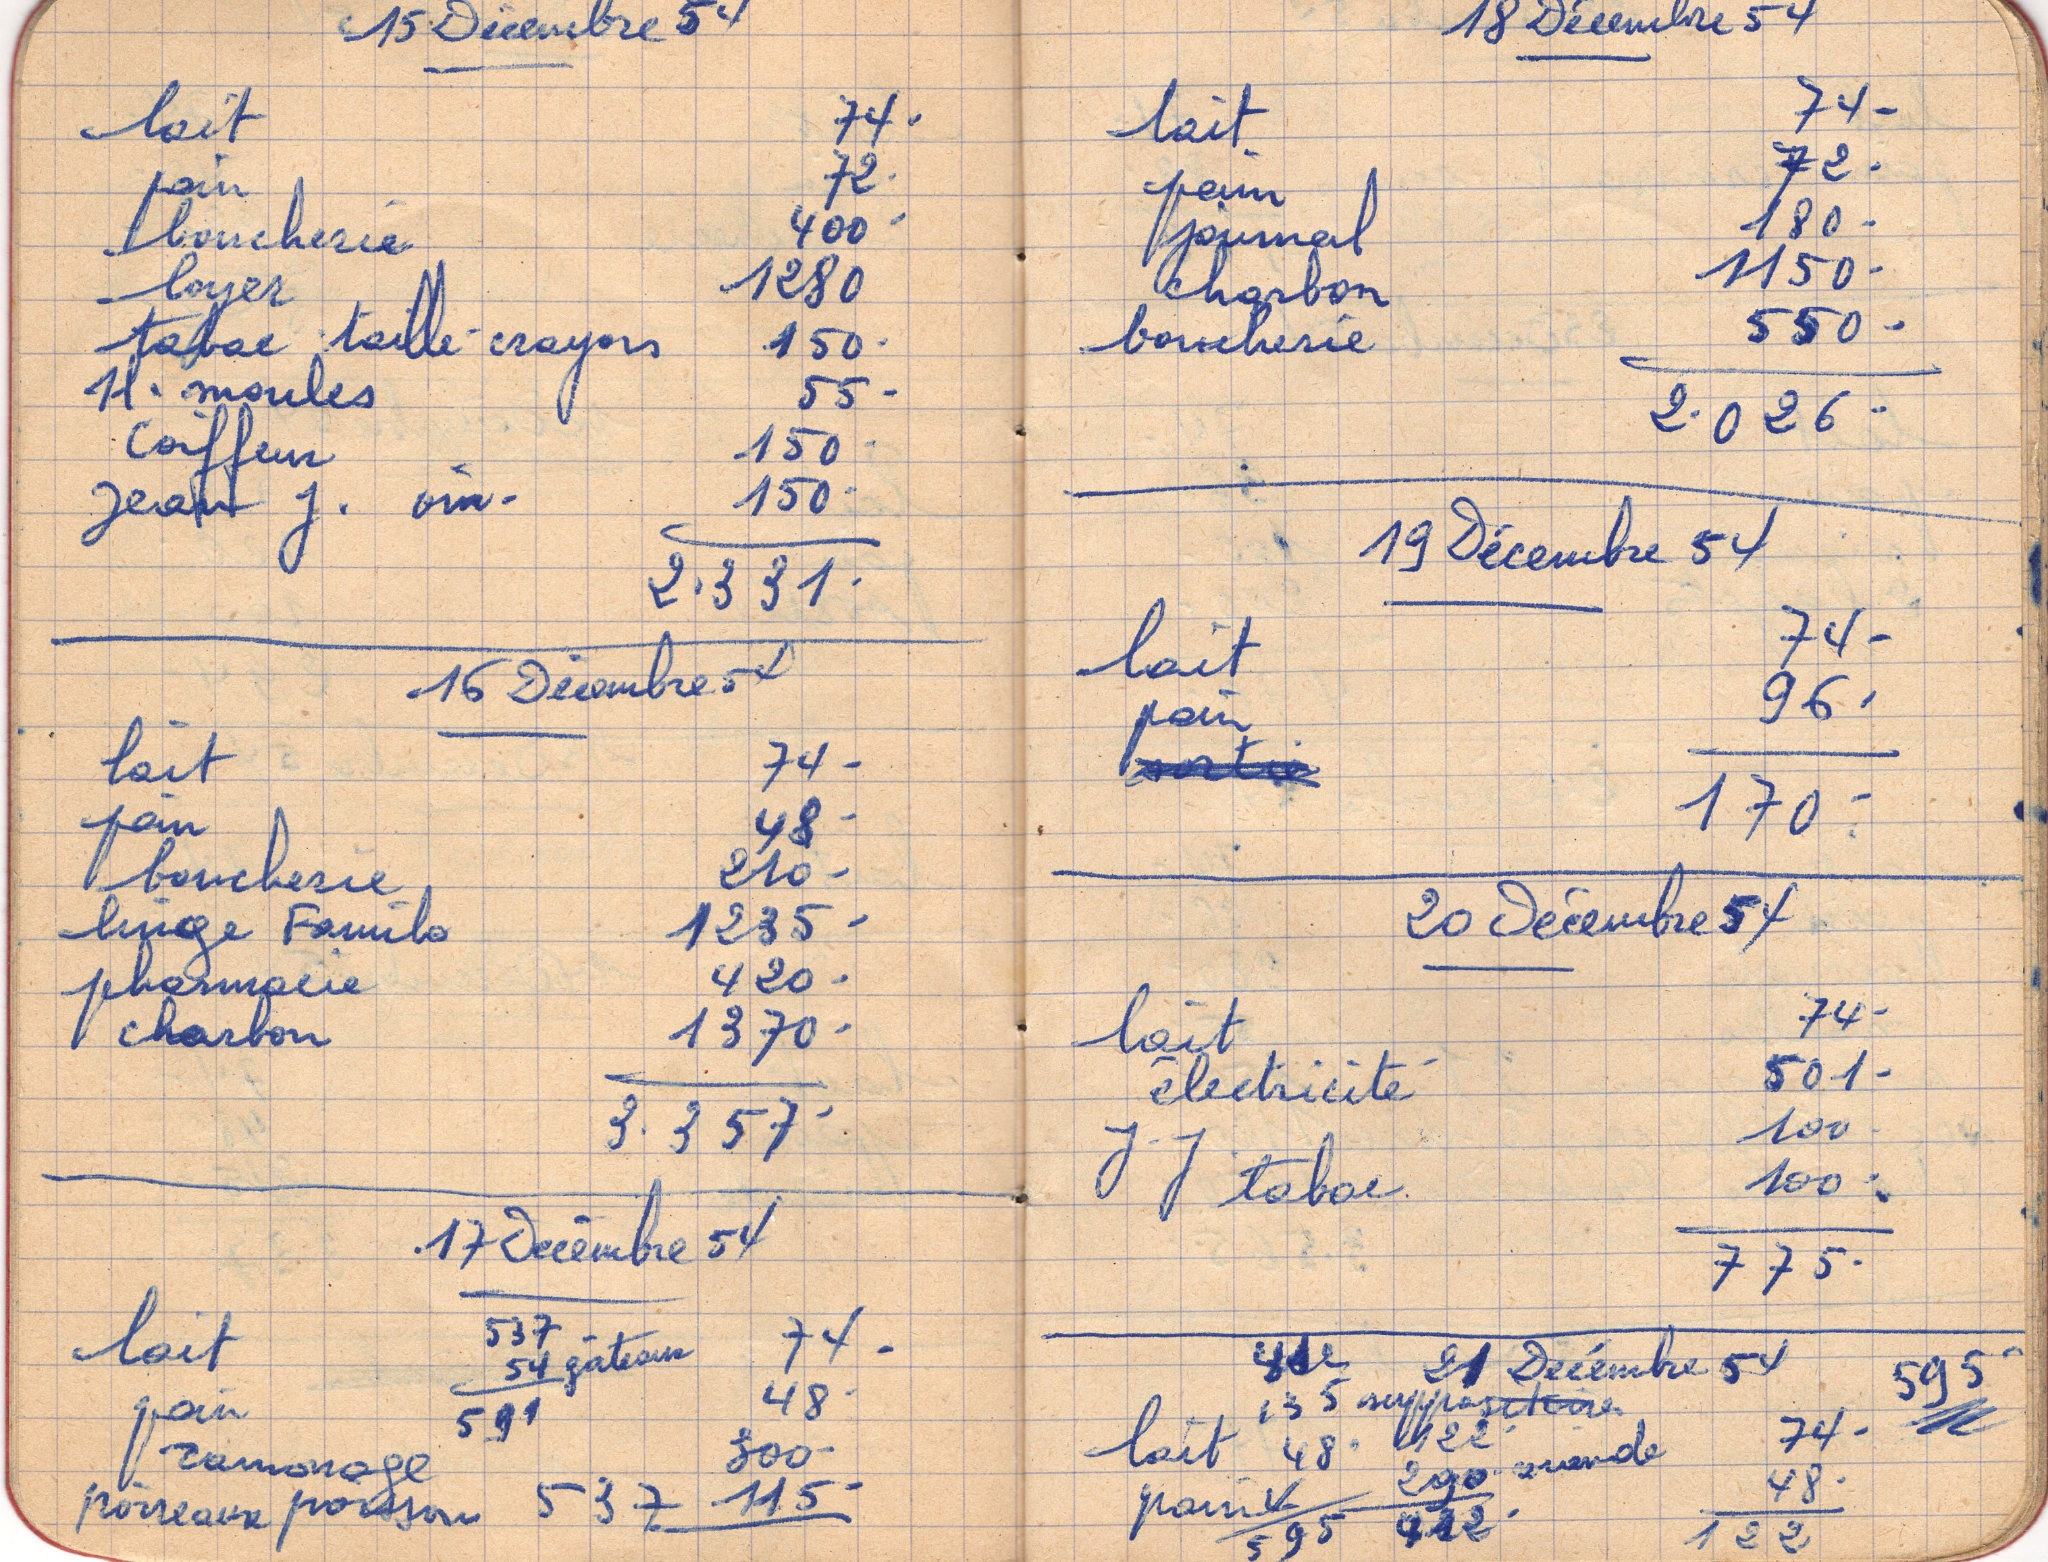 15 Décembre 54
lait 74.
pain 72.
boucherie 400
loyer 1280
tabac taille-crayons 150.
1l. moules 55-
Coiffeur 150
Jean J. 150.
2.331.
16 Décembre 54
lait 74-
pain 48-
boucherie 210-
linge Familo 1235-
pharmacie 420-
charbon 1370-
3.357-
17 Décembre 54
537
lait 54 gâteaux 74-
pain 591 48
ramonage 300-
poireaux poisson 537 115-
18 Décembre 54
lait 74-
pain 72.
journal 180-
charbon 1150-
boucherie 550-
2.026-
19 Décembre 54
lait 74-
pain 96.
sortie
170-
20 Décembre 54
lait 74-
électricité 501-
J.J 100-
tabac 100-
775-
412 21 Decémbre 54 595
135 suppositoire
lait 48. 122 74-
290 viande
pain 48-
595 412- 122